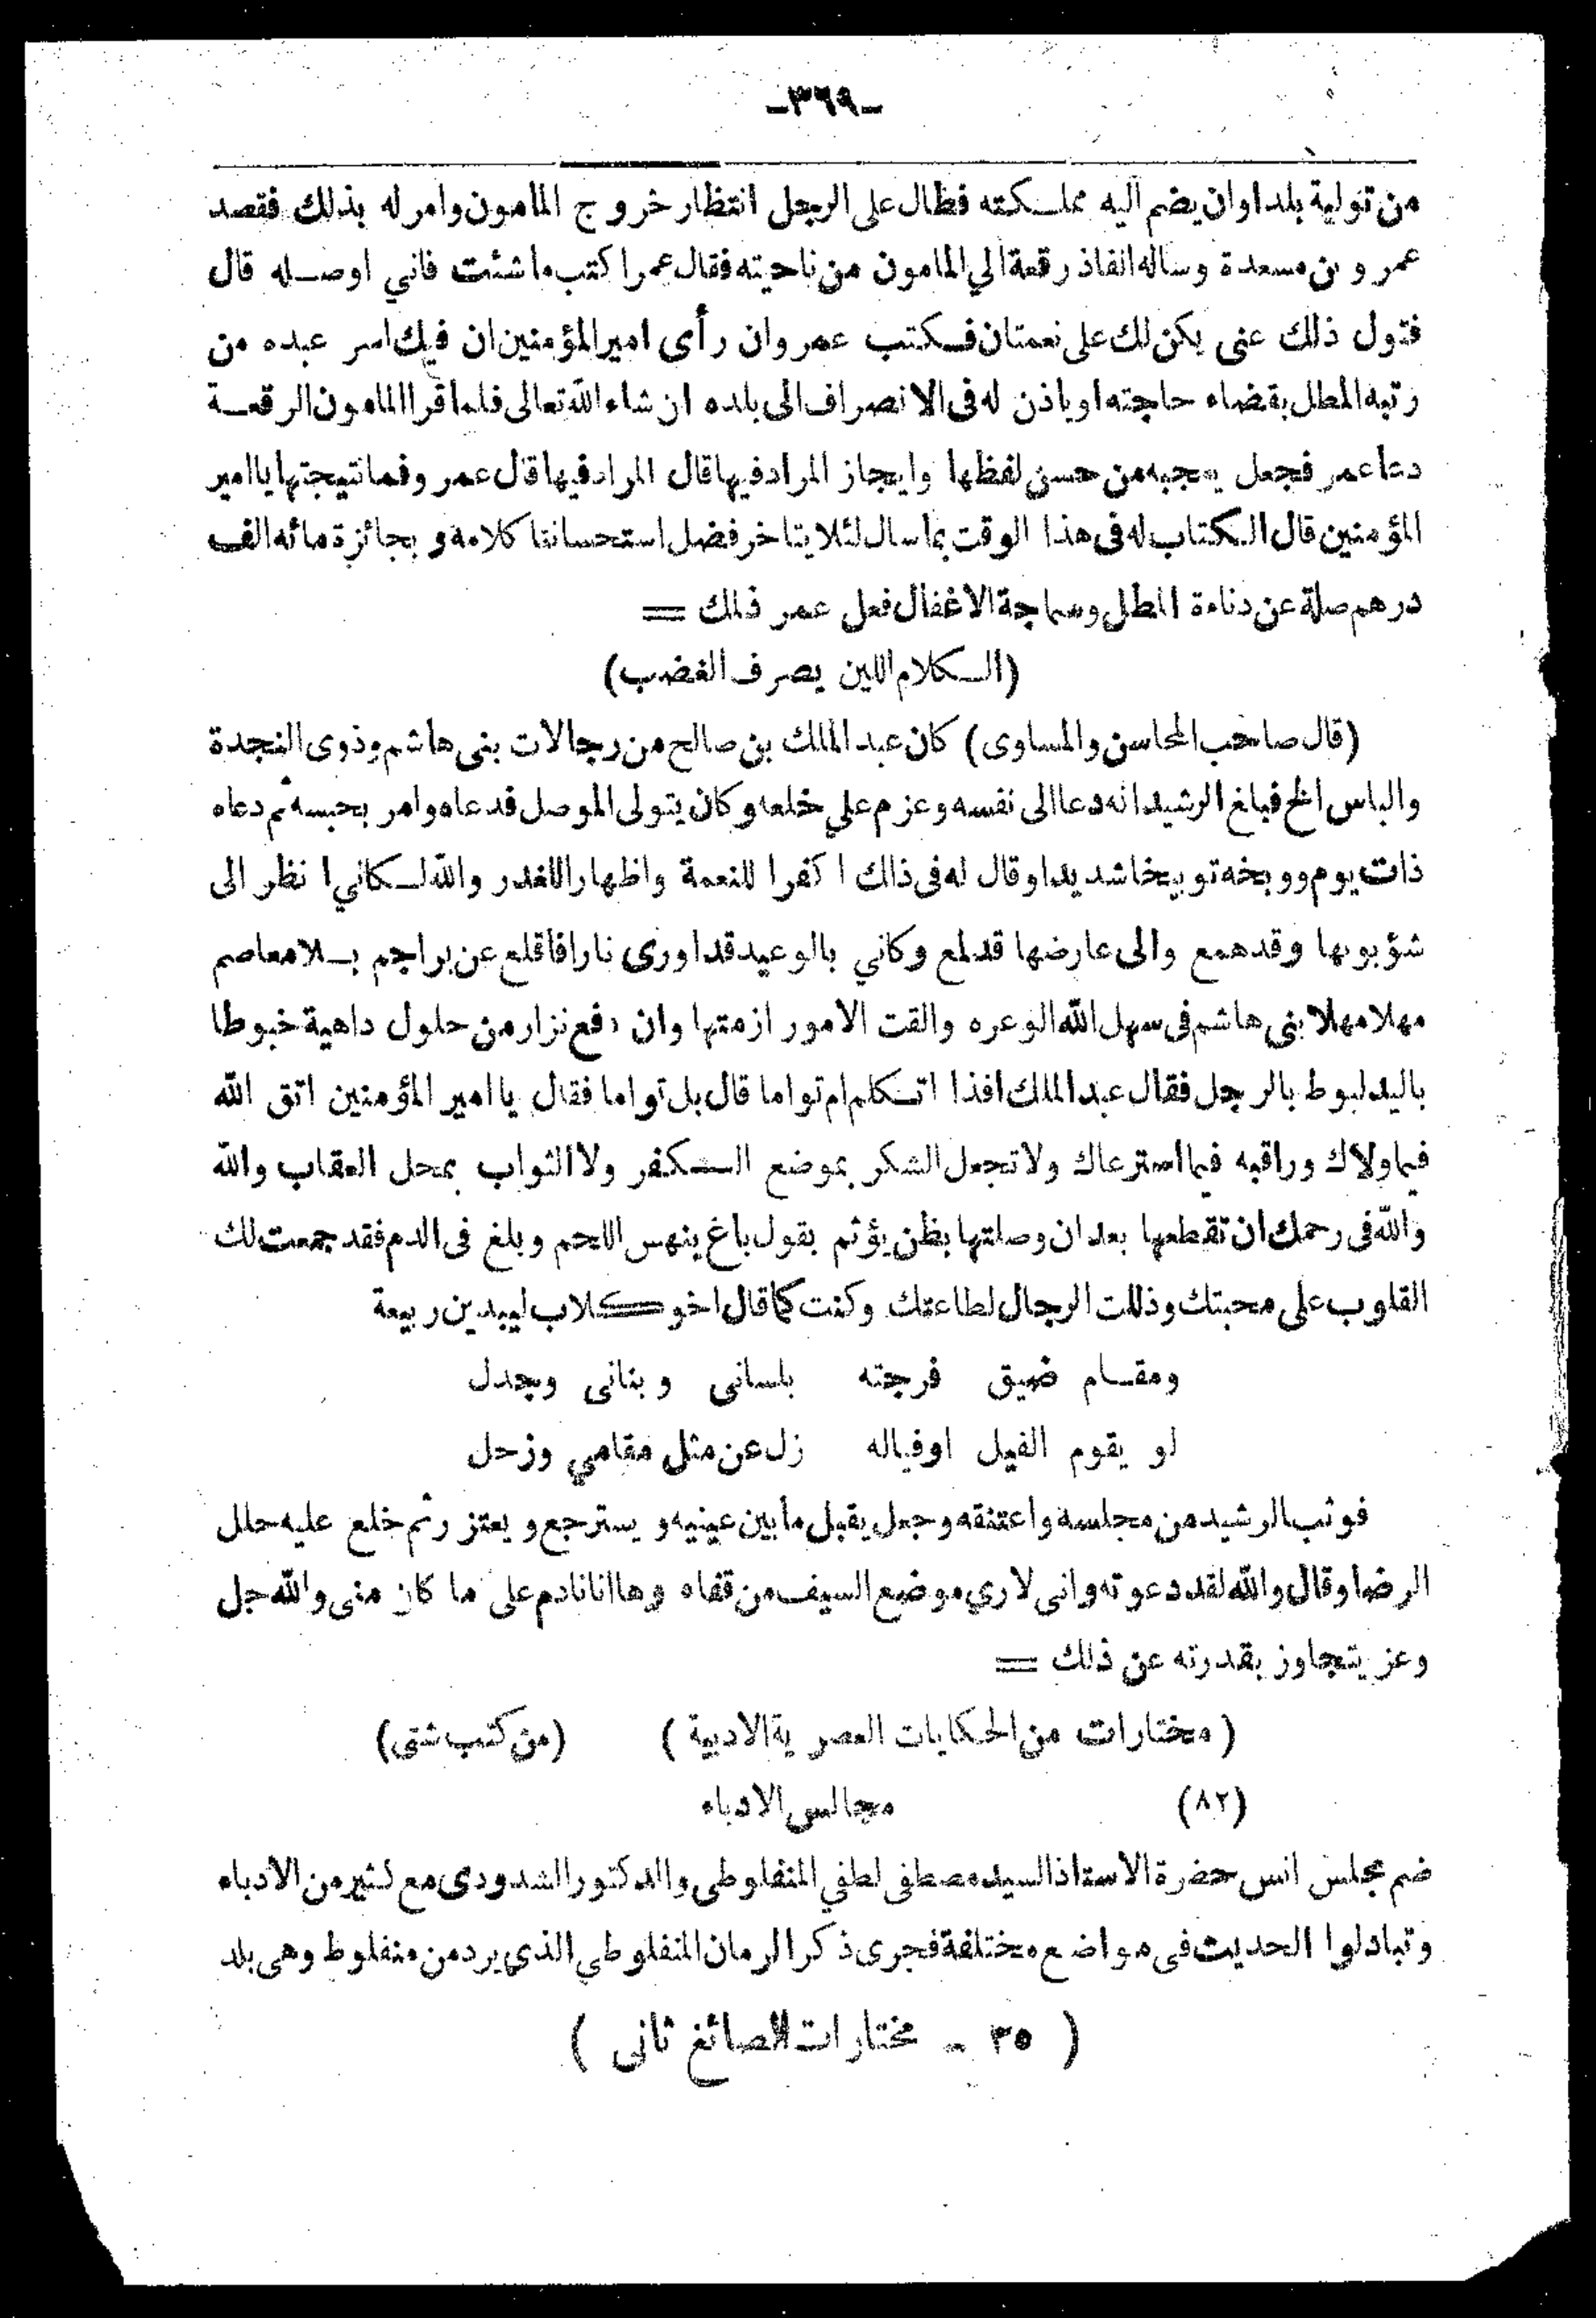 -٣٦٩-
من تولية بلد اوان يضم اليه مملكته فطال على الرجل انتظار خروج المامون وامر له بذلك فقصد
عمرو بن مسعدة وساله انفاذ رقعة الي المامون من ناحيته فقال عمرا كتب ما شئت فاني اوصله قال
فتول ذلك عنى يكن لك على نعمتان فكتب عمروان رأى امير المؤمنين ان فيك اسر عبده من
رتبه المطل بقضاء حاجته او ياذن له فى الانصراف الى بلده ان شاء الله تعالى فلما قرا المامون الرقعة
دعا عمر فجعل يعجبه من حسن لفظها وايجاز المراد فيها قال المراد فيها قال عمر وفما نتيجتها يا امير
المؤمنين قال الكتاب له فى هذا الوقت بما سال لئلا يتاخر فضل استحساننا كلامه و بجائزة مائه الف
درهم صلة عن دناءة المطل وسماجة الاغفال فعل عمر ذلك =
(الكلام اللين يصرف الغضب)
(قال صاحب المحاسن والمساوى) كان عبد الملك بن صالح من رجالات بنى هاشم وذوى النجدة
والباس الخ فبلغ الرشيد انه دعا الى نفسه وعزم علي خلعه وكان يتولى الموصل فدعاه وامر بحبسه ثم دعاه
ذات يوم ووبخه توبيخا شديدا وقال له فى ذلك ا كفرا للنعمة واظهارا للغدر والله لكاني ا نظر الى
شؤبوبها وقد همع والى عارضها قد لمع وكاني بالوعيد قد اورى نارا فاقلع عن براجم بلا معاصم
مهلا مهلا بنى هاشم فى سهل الله الوعره والقت الامور ازمتها وان دفع نزار من حلول داهية خبوطا
باليد لبوط بالرجل فقال عبد الملك افذا اتكلم ام تواما قال بل تواما فقال يا امير المؤمنين اتق الله
فيما ولاك وراقبه فيما استرعاك ولا تجعل الشكر بموضع الكفر ولا الثواب بمحل العقاب والله
والله فى رحمك ان تقطعها بعد ان وصلتها بظن يؤثم بقول باغ ينهس اللحم وبلغ فى الدم فقد جمعت لك
القلوب على محبتك وذللت الرجال لطاعتك وكنت كما قال اخو كلاب لبيد بن ربيعة
ومقام ضيق فرجته بلسانى وبنانى وجدل
لو يقوم الفيل اوفياله زل عن مثل مقامي وزحل
فوثب الرشيد من مجلسه واعتنقه وجعل يقبل ما بين عينيه و يسترجع و يعتز رثم خلع عليه حلل
الرضا وقال والله لقد دعوته وانى لاري موضع السيف من قفاه وها انا نادم على ما كان منى والله جل
وعز يتجاوز بقدرته عن ذلك =
(مختارات من الحكايات العصرية الادبية) (من كتب شتى)
(٨٢) مجالس الادباء
ضم مجلس انس حضرة الاستاذ السيد مصطفى لطفي المنفلوطى والدكتور الشدودى مع كثير من الادباء
وتبادلوا الحديث فى مواضع مختلفة فجرى ذكر الرمان المنفلوطي الذى يرد من منفلوط وهى بلد
(٣٥ - مختارات الصائغ ثانى)